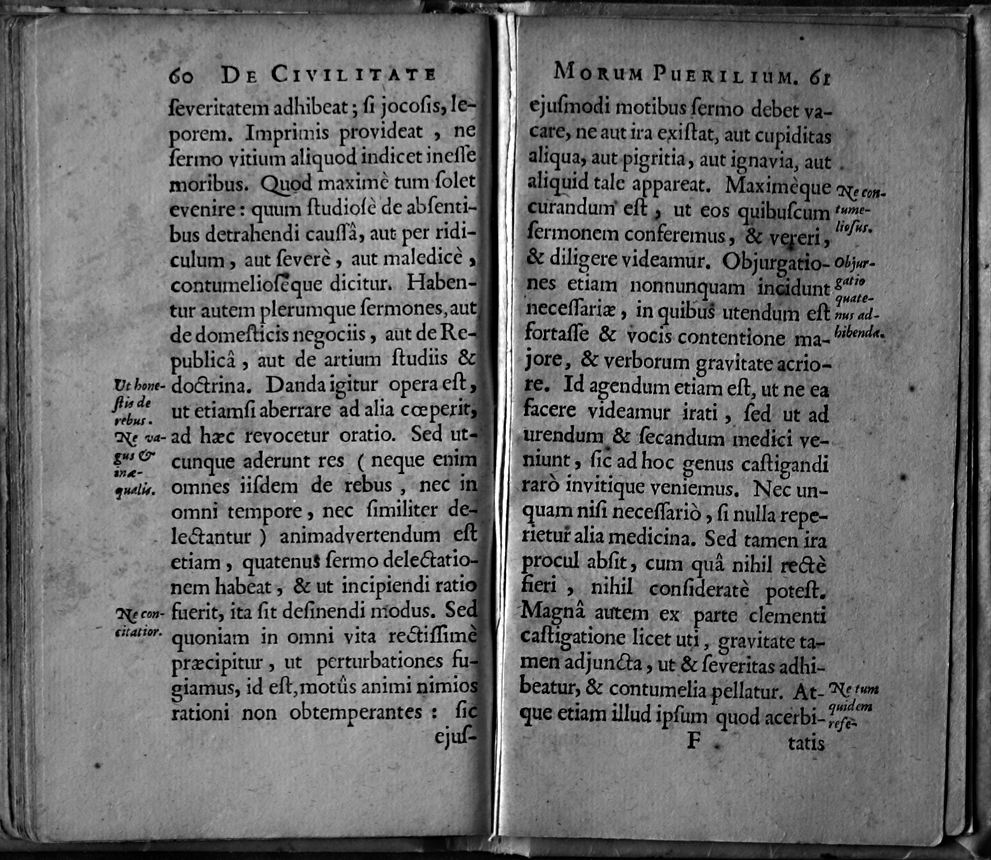 60 DE CIVILITATE
ſeveritatem adhibeat; ſi jocoſis, le-
porem. Imprimis provideat , ne
ſermo vitium aliquod indicet ineſſe
moribus. Quod maximè tum ſolet
evenire: quum ſtudioſè de abſenti-
bus detrahendi cauſſâ, aut per ridi-
culum, aut ſeverè, aut maledicè,
contumelioſéque dicitur. Haben-
tur autem plerumque ſermones, aut
de domeſticis negociis, aut de Re-
publicâ, aut de artium ſtudiis &
doctrina. Danda igitur opera eſt,
ut etiamſi aberrare ad alia cœperit,
ad hæc revocetur oratio. Sed ut-
cunque aderunt res ( neque enim
omnes iiſdem de rebus, nec in
omni tempore, nec ſimiliter de-
lectantur ) animadvertendum eſt
etiam, quatenus ſermo delectatio-
nem habeat, & ut incipiendi ratio
fuerit, ita ſit deſinendi modus. Sed
quoniam in omni vita rectiſſimè
præcipitur, ut perturbationes fu-
giamus, id eſt, motûs animi nimios
rationi non obtemperantes : ſic
ejuſ-
Ut hone-
ſtis de
rebus.
Ne va-
gus &
inæ-
qualis.
Ne con-
citatior.
MORUM PUERILIUM. 61
ejuſmodi motibus ſermo debet va-
care, ne aut ira exiſtat, aut cupiditas
aliqua, aut pigritia, aut ignavia, aut
aliquid tale appareat. Maximèque
curandum eſt, ut eos quibuſcum
ſermonem conferemus, & vereri,
& diligere videamur. Objurgatio-
nes etiam nonnunquam incidunt
neceſſariæ, in quibus utendum eſt
fortaſſe & vocis contentione ma-
jore, & verborum gravitate acrio-
re. Id agendum etiam eſt, ut ne ea
facere videamur irati, ſed ut ad
urendum & ſecandum medici ve-
niunt, ſic ad hoc genus caſtigandi
rarò invitique veniemus. Nec un-
quam niſi neceſſariò, ſi nulla repe-
rietur alia medicina. Sed tamen ira
procul abſit, cum quâ nihil rectè
fieri, nihil conſideratè poteſt.
Magnâ autem ex parte clementi
caſtigatione licet uti, gravitate ta-
men adjuncta, ut & ſeveritas adhi-
beatur, & contumelia pellatur. At-
que etiam illud ipſum quod acerbi-
F tatis
Ne con-
tume-
lioſus.
Objur-
gatio
quate-
nus ad-
hibenda.
Ne tum
quidem
reſe-